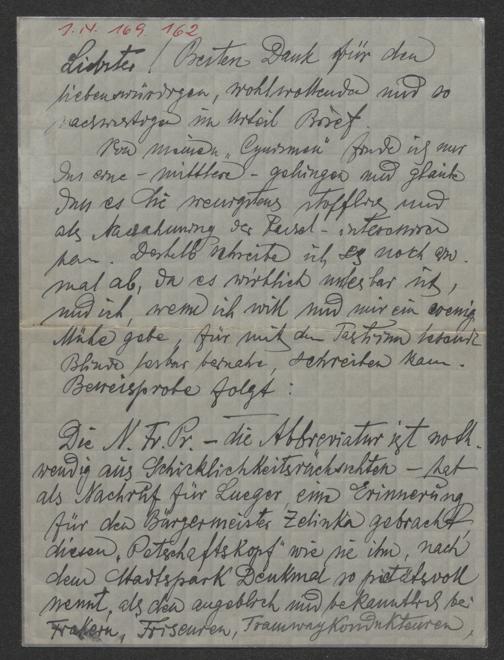 1. N. 169. 162
Liebster! Besten Dank für den
liebenswürdigen, wohlwollenden und so
im Urteil Brief.
Von meinen „Cynismen" finde ich nur
das eine – mittlere – gelungen und glaube
dass es Sie wenigstens stofflich und
als Nachahmung der Peisel-
kann. Deshalb schreibe ich es noch ein-
mal ab, da es wirklich unlesbar ist,
und ich, wenn ich will und mir ein wenig
Mühe gebe, für mit dem Tastsinn
Blinde lesbar beinahe, schreiben kann.
Beweisprobe folgt:
Die N. Fr. Pr. – die Abbreviatur ist noth-
wendig aus Schicklichkeitsrücksichten – hat
als Nachruf für Lueger, eine Erinnerung
für den Bürgermeister Zelinka gebracht,
diesen „Petschaftskopf" wie sie ihn, nach
dem Stadtspark Denkmal so pietätsvoll
nennt, als den angeblich und bekanntlich bei
Fiakern, Friseuren, Tramwaykondukteuren,